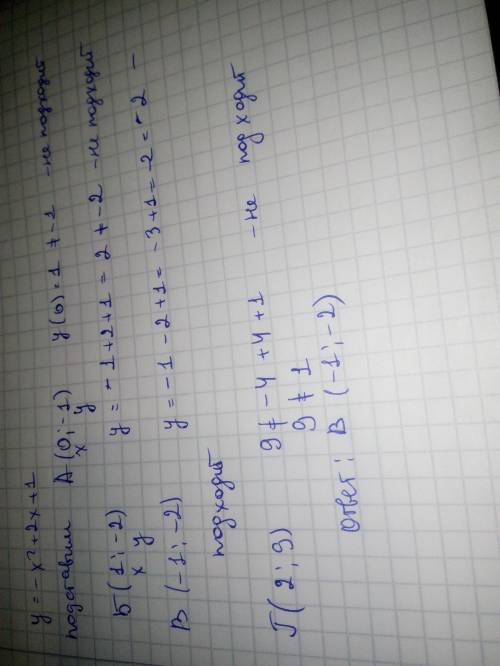 y = -x² + 2x + 1
подставим A (0; -1) y(0) = 1 ≠ -1 - не подходит
x y
Б (1; -2) y = -1 + 2 + 1 = 2 ≠ -2 - не подходит
x y
В (-1; -2) y = -1 - 2 + 1 = -3 + 1 = -2 = -2 -
подходит
Г (2; 9) 9 ≠ -4 + 4 + 1 - не подходит
9 ≠ 1
Ответ: В (-1; -2)